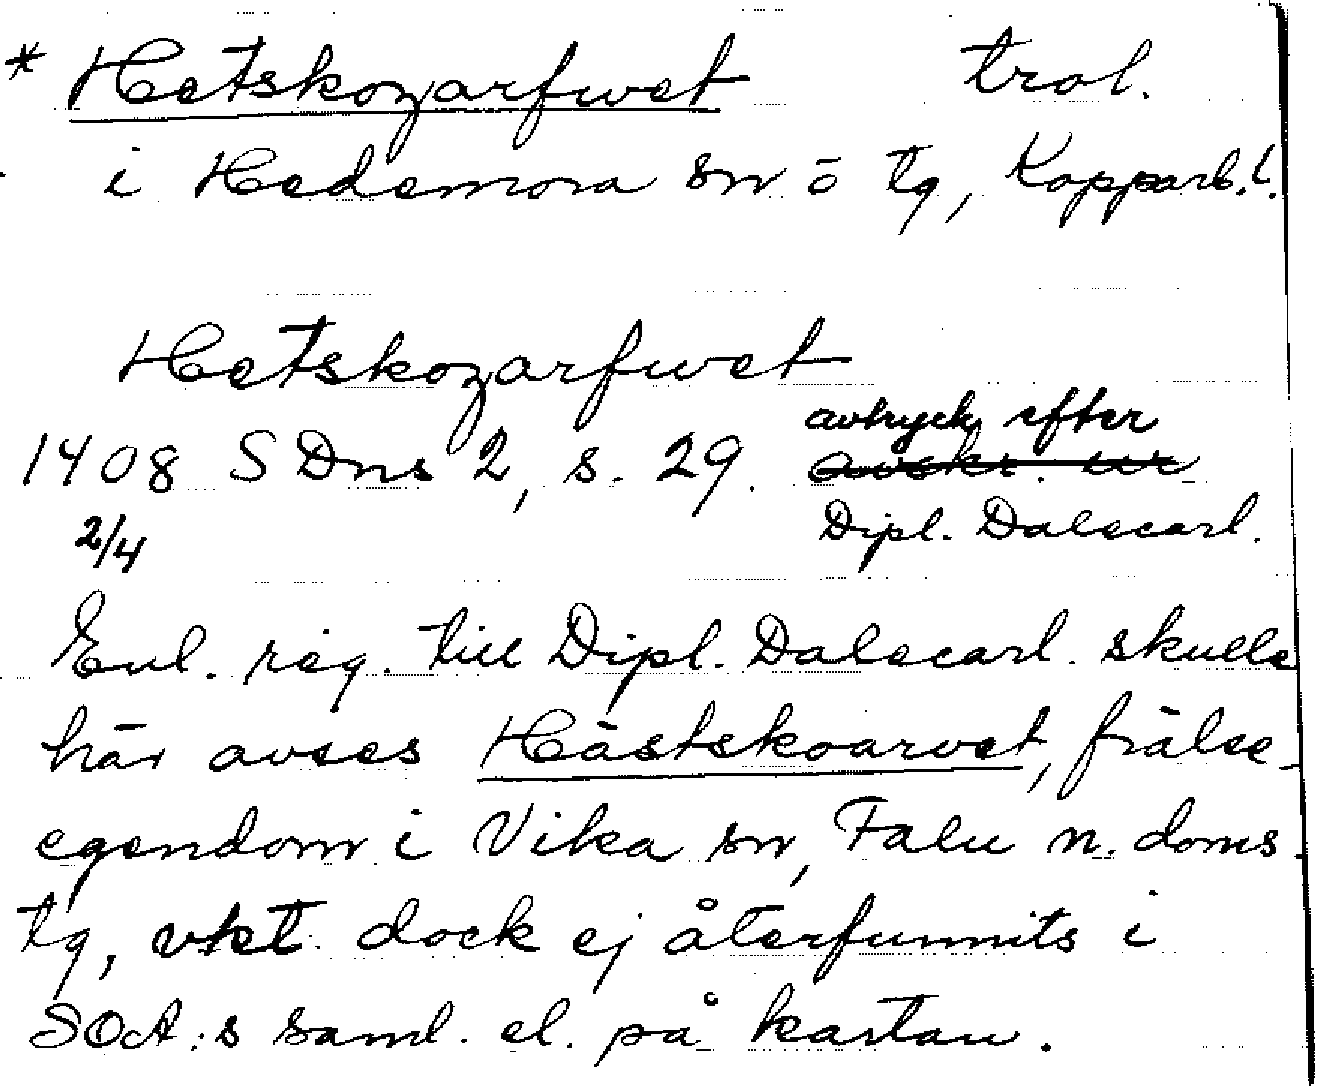 * Hetskozarfwet trol.
i Hedemora sn o tg, Kopparb. l.
Hetskozarfwet
1408 SDns 2, s. 29. avtryck efter
avskr. ur
2/4 Dipl. Dalecarl.
Enl. reg. till Dipl. Dalecarl. skulle
här avses Hästskoarvet, frälse-
egendom i Vika sn, Falu n. doms.
tg, vket dock ej återfunnits i
SOA:s saml. el. på kartan.